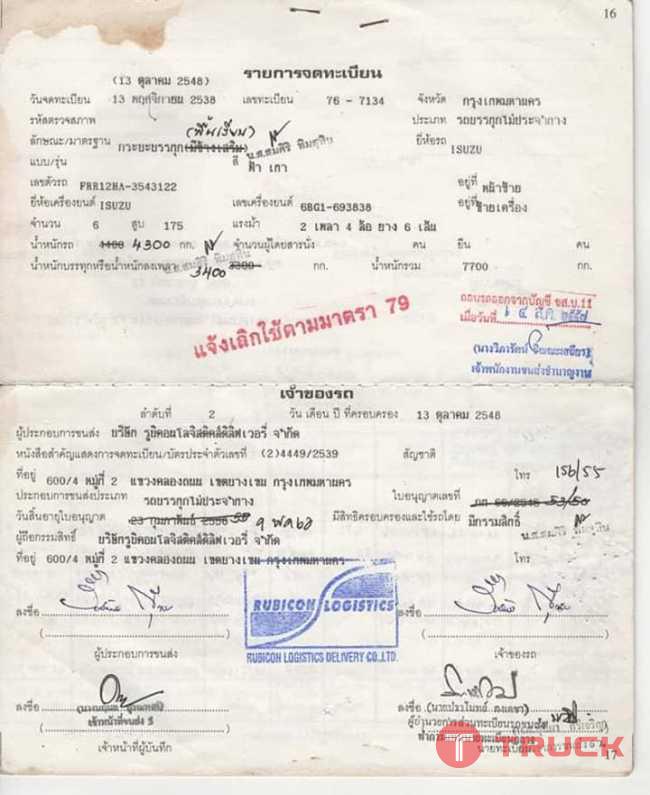 16
รายการจดทะเบียน
(13 ตุลาคม 2548)
วันจดทะเบียน 13 พฤศจิกายน 2538 เลขทะเบียน 76 - 7134 จังหวัด กรุงเทพมหานคร
รหัสตรวจสภาพ ประเภท รถบรรทุกไม่ประจำทาง
(พื้นเรียบ)
ลักษณะ/มาตรฐาน กระบะบรรทุก(มีข้างเสริม) ยี่ห้อรถ ISUZU
แบบ/รุ่น สี ฟ้า เทา
เลขตัวรถ FRR12HA-3543122 อยู่ที่ หน้าซ้าย
ยี่ห้อเครื่องยนต์ ISUZU เลขเครื่องยนต์ 6BG1-693838 อยู่ที่ ซ้ายเครื่อง
จำนวน 6 สูบ 175 แรงม้า 2 เพลา 4 ล้อ ยาง 6 เส้น
น้ำหนักรถ 4400 4300 กก. จำนวนผู้โดยสารนั่ง คน ยืน คน
น้ำหนักบรรทุกหรือน้ำหนักลงเพลา 3400 3300 กก. น้ำหนักรวม 7700 กก.
แจ้งเลิกใช้ตามมาตรา 79
ถอนรถออกจากบัญชี ขส.บ.11
เมื่อวันที่ ๑๕ ส.ค. ๒๕๕๗
เจ้าพนักงานขนส่งชำนาญงาน
เจ้าของรถ
ลำดับที่ 2 วัน เดือน ปี ที่ครอบครอง 13 ตุลาคม 2548
ผู้ประกอบการขนส่ง บริษัท รูบิคอนโลจิสติคส์ดิลิฟเวอรี่ จำกัด
หนังสือสำคัญแสดงการจดทะเบียน/บัตรประจำตัวเลขที่ (2)4449/2539 สัญชาติ
ที่อยู่ 600/4 หมู่ที่ 2 แขวงคลองถนน เขตบางเขน กรุงเทพมหานคร โทร 156/55
ประกอบการขนส่งประเภท รถบรรทุกไม่ประจำทาง ใบอนุญาตเลขที่ 53/50
วันสิ้นอายุใบอนุญาต 23 กุมภาพันธ์ 2550 มีสิทธิครอบครองและใช้รถโดย มีกรรมสิทธิ์
ผู้ถือกรรมสิทธิ์ บริษัทรูบิคอนโลจิสติคส์ดิลิฟเวอรี่ จำกัด
ที่อยู่ 600/4 หมู่ที่ 2 แขวงคลองถนน เขตบางเขน กรุงเทพมหานคร โทร
RUBICON LOGISTICS
RUBICON LOGISTICS DELIVERY CO.,LTD.
ลงชื่อ ลงชื่อ
ผู้ประกอบการขนส่ง เจ้าของรถ
ลงชื่อ ลงชื่อ
เจ้าหน้าที่ขนส่ง 5
เจ้าหน้าที่ผู้บันทึก นายทะเบียน
TRUCK
17